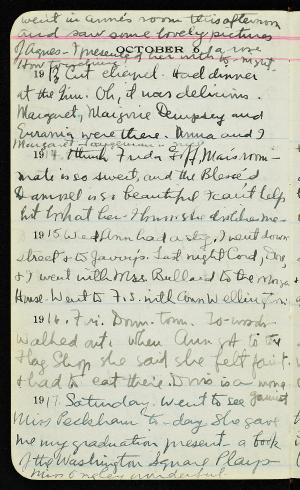 went in Anne's room this afternoon
and saw some lovely pictures
of Agnes - I presence of her with a rose
OCTOBER 6
How to-night.
1913 Cut chapel. Had dinner
at the Inn. Oh, it was delicious.
Margaret, Marjorie Dempsey and
were there. Anna and I
Margaret
1914. I think Frieda Mai's room-
mate is so sweet, and the Blessed
Damosel is so beautiful I can't help
but
1915 We & Ann had a I went down
street & to Last night Cord, Dor,
& I went with Mrs. Bullard to the
House. Went to F.S. with Ann Wellington
1916. Fri. Dorm. tom. To-wards
walked out. When Ann got to the
Flag Shop she said she felt faint
& had to eat there. Doris is a
1917. Saturday. Went to see
Miss Peckham to-day. She gave
me my graduation present - a book
of the Washington Square Plays
Miss wonderful